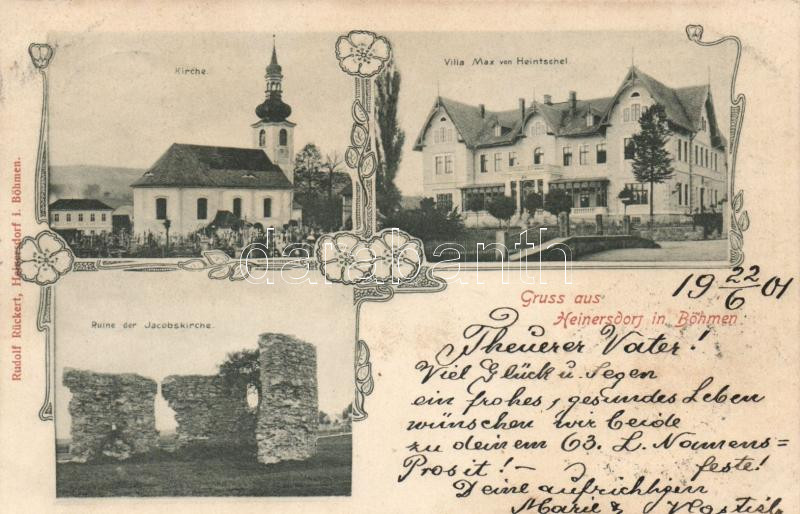 Kirche.
Villa Max von Heintschel.
Ruine der Jacobskirche.
Rudolf Rückert, Heinersdorf i. Böhmen.
Gruss aus
Heinersdorf in Böhmen.
19 22/6 01
Theuerer Vater!
Viel Glück u. Segen
ein frohes, gesundes Leben
wünschen wir beide
zu deinem 63. Namens=
feste!
Prosit!-
Deine aufrichtigen
Marie &
darabanth